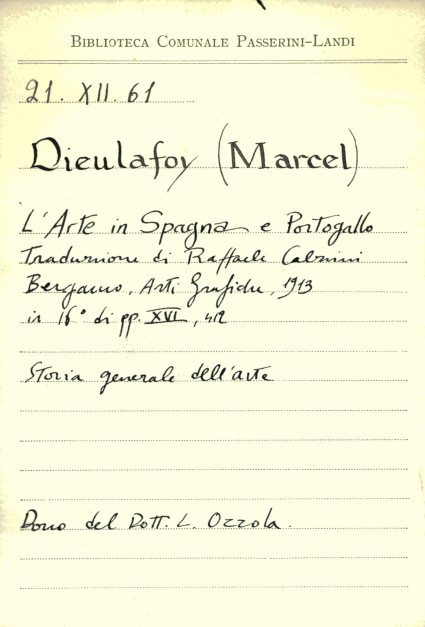 BIBLIOTECA COMUNALE PASSERINI-LANDI
21. XII. 61
Dieulafoy (Marcel)
L'Arte in Spagna e Portogallo
Traduzione di Raffaele Calzini
Bergamo, Arti Grafiche, 1913
in 16° di pp. XVI, 412
Storia generale dell'arte
Dono del Dott. L. Ozzola.